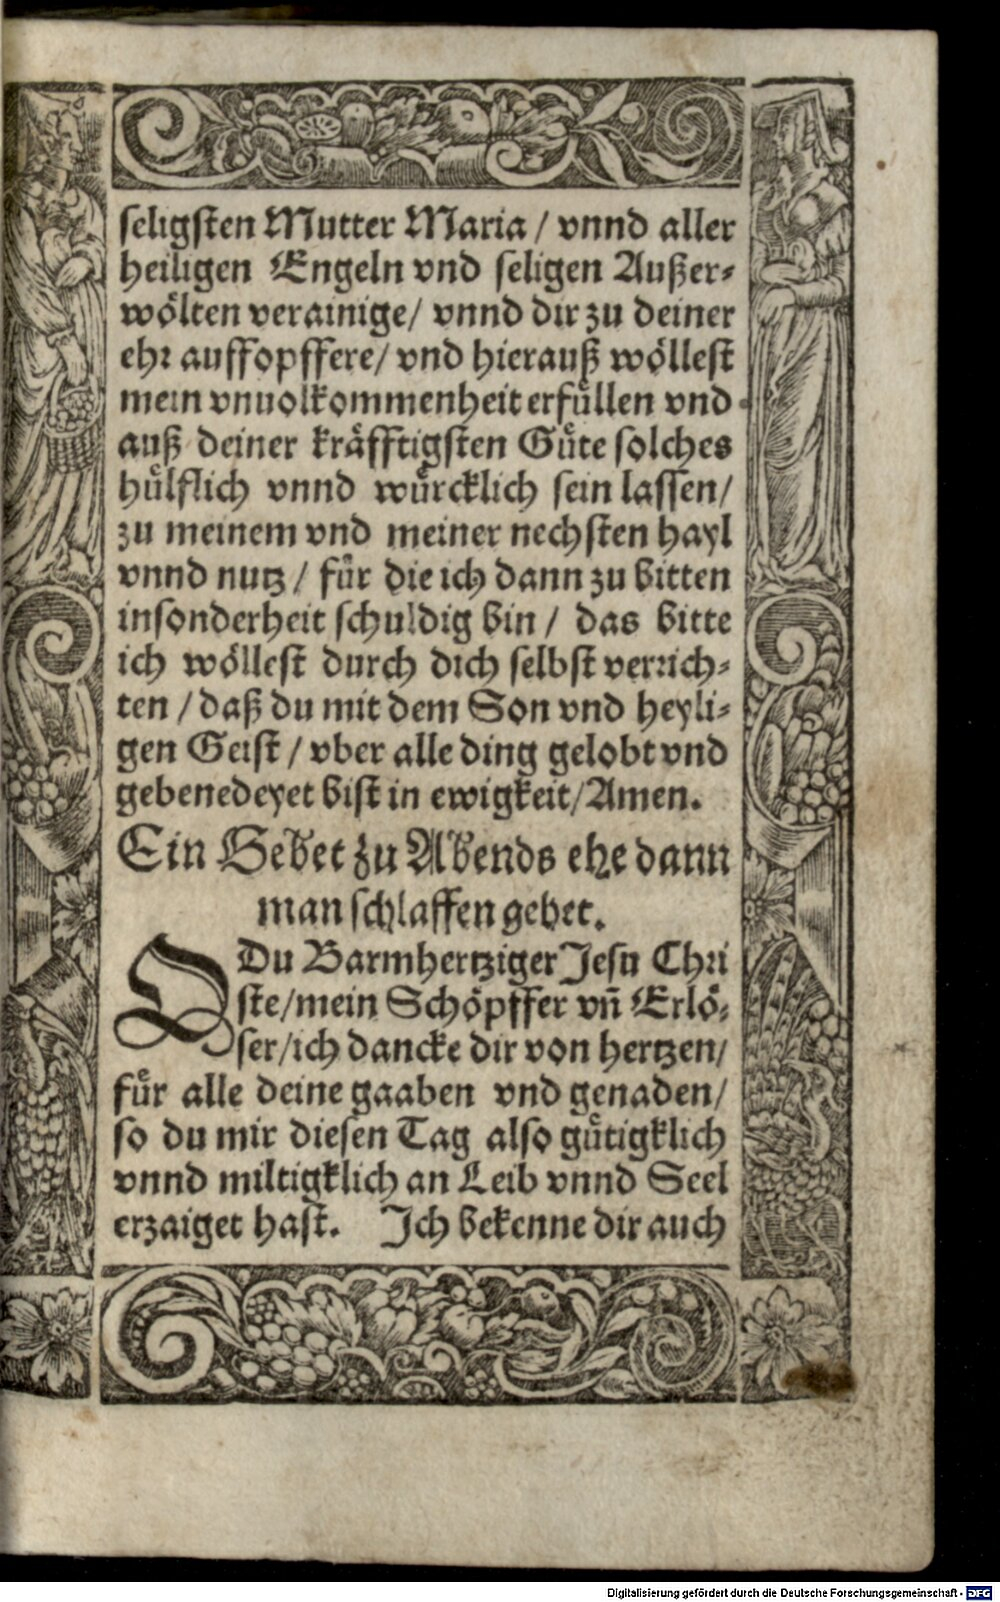 seligsten Mutter Maria / vnnd aller
heiligen Engeln vnd seligen Außer-
wölten verainige/ vnnd dir zu deiner
ehr auffopffere/ vnd hierauß wöllest
mein vnuolkommenheit erfüllen vnd
auß deiner kräfftigsten Güte solches
hülflich vnnd würcklich sein lassen/
zu meinem vnd meiner nechsten hayl
vnnd nutz / für die ich dann zu bitten
insonderheit schuldig bin / das bitte
ich wöllest durch dich selbst verrich-
ten / daß du mit dem Son vnd heyli-
gen Geist / vber alle ding gelobt vnd
gebenedeyet bist in ewigkeit/Amen.
Ein Gebet zu Abends ehe dann
man schlaffen gehet.
O Du Barmhertziger Jesu Chri
ste/mein Schöpffer vñ Erlö-
ser/ich dancke dir von hertzen/
für alle deine gaaben vnd genaden/
so du mir diesen Tag also gütigklich
vnnd miltigklich an Leib vnnd Seel
erzaiget hast. Ich bekenne dir auch
Digitalisierung gefördert durch die Deutsche Forschungsgemeinschaft - DFG